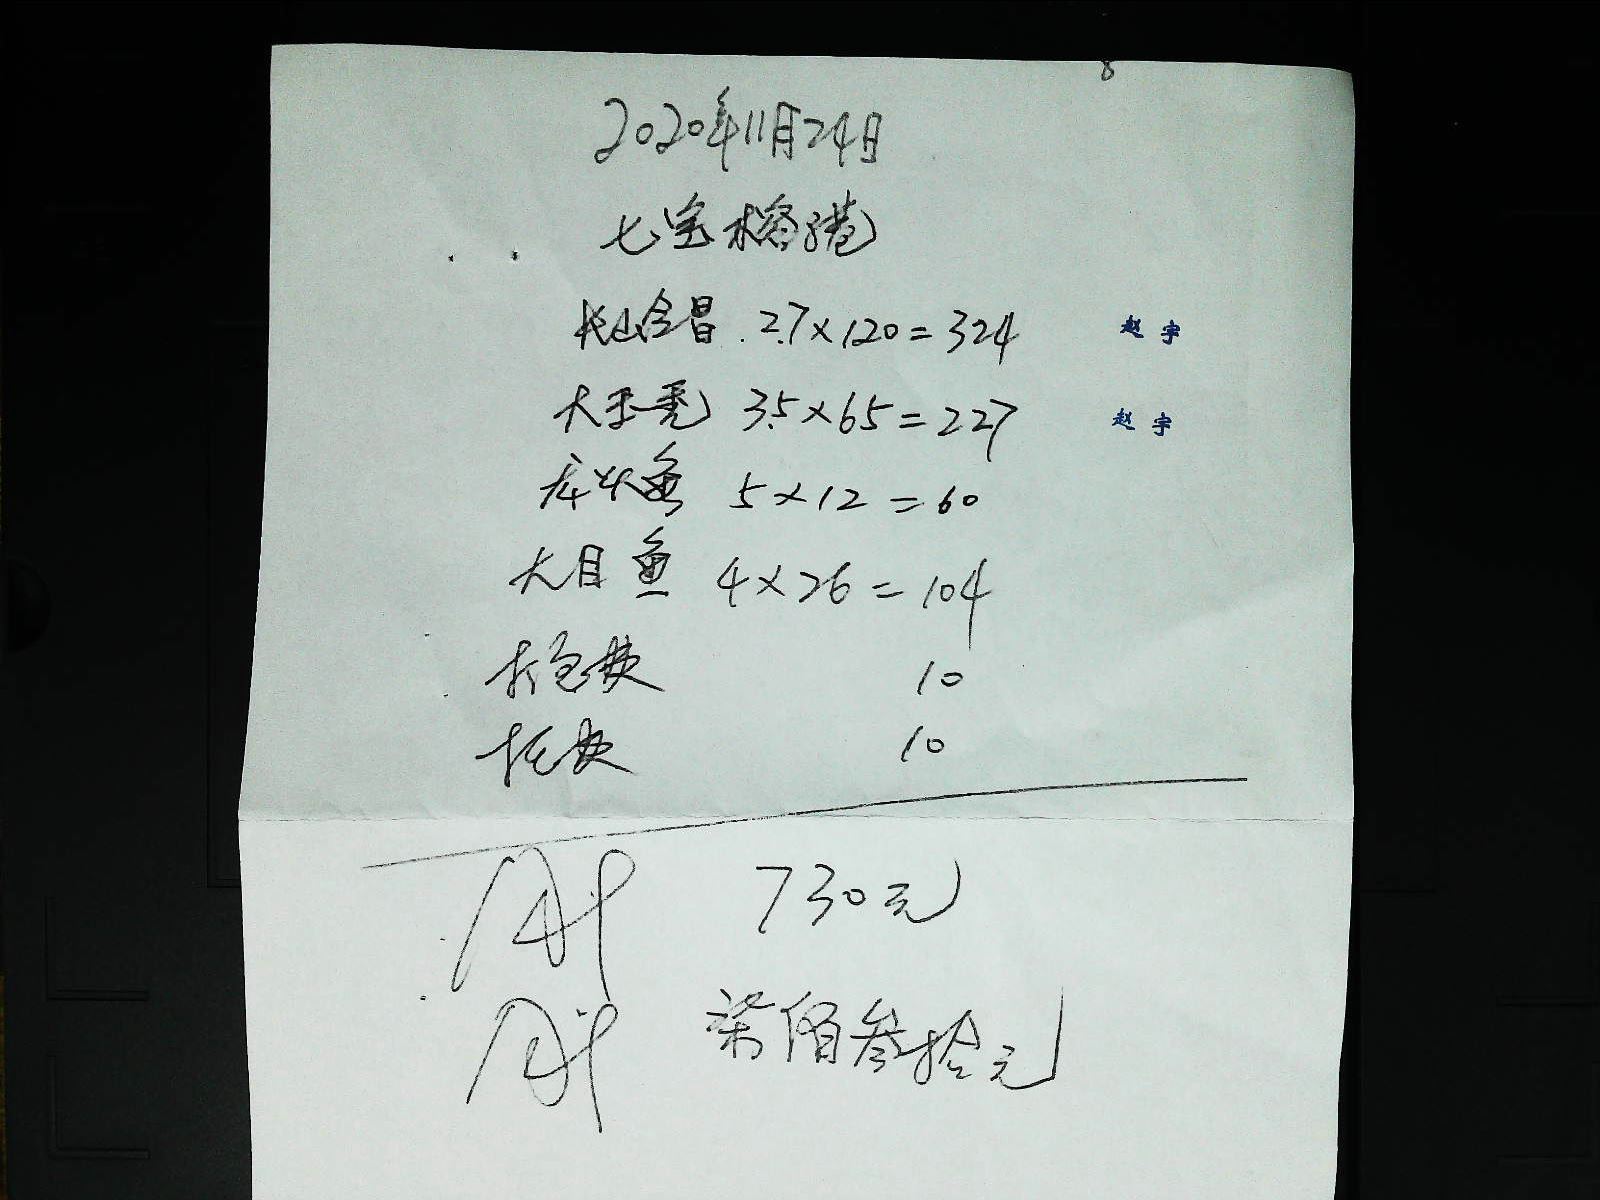 8
2020年11月24日
七宝榕港
长山含昌 2.7×120=324 赵宇
大玉秃 3.5×65=227 赵宇
鱼 5×12=60
大目鱼 4×26=104
打包费 10
托费 10
730元
柒佰叁拾元